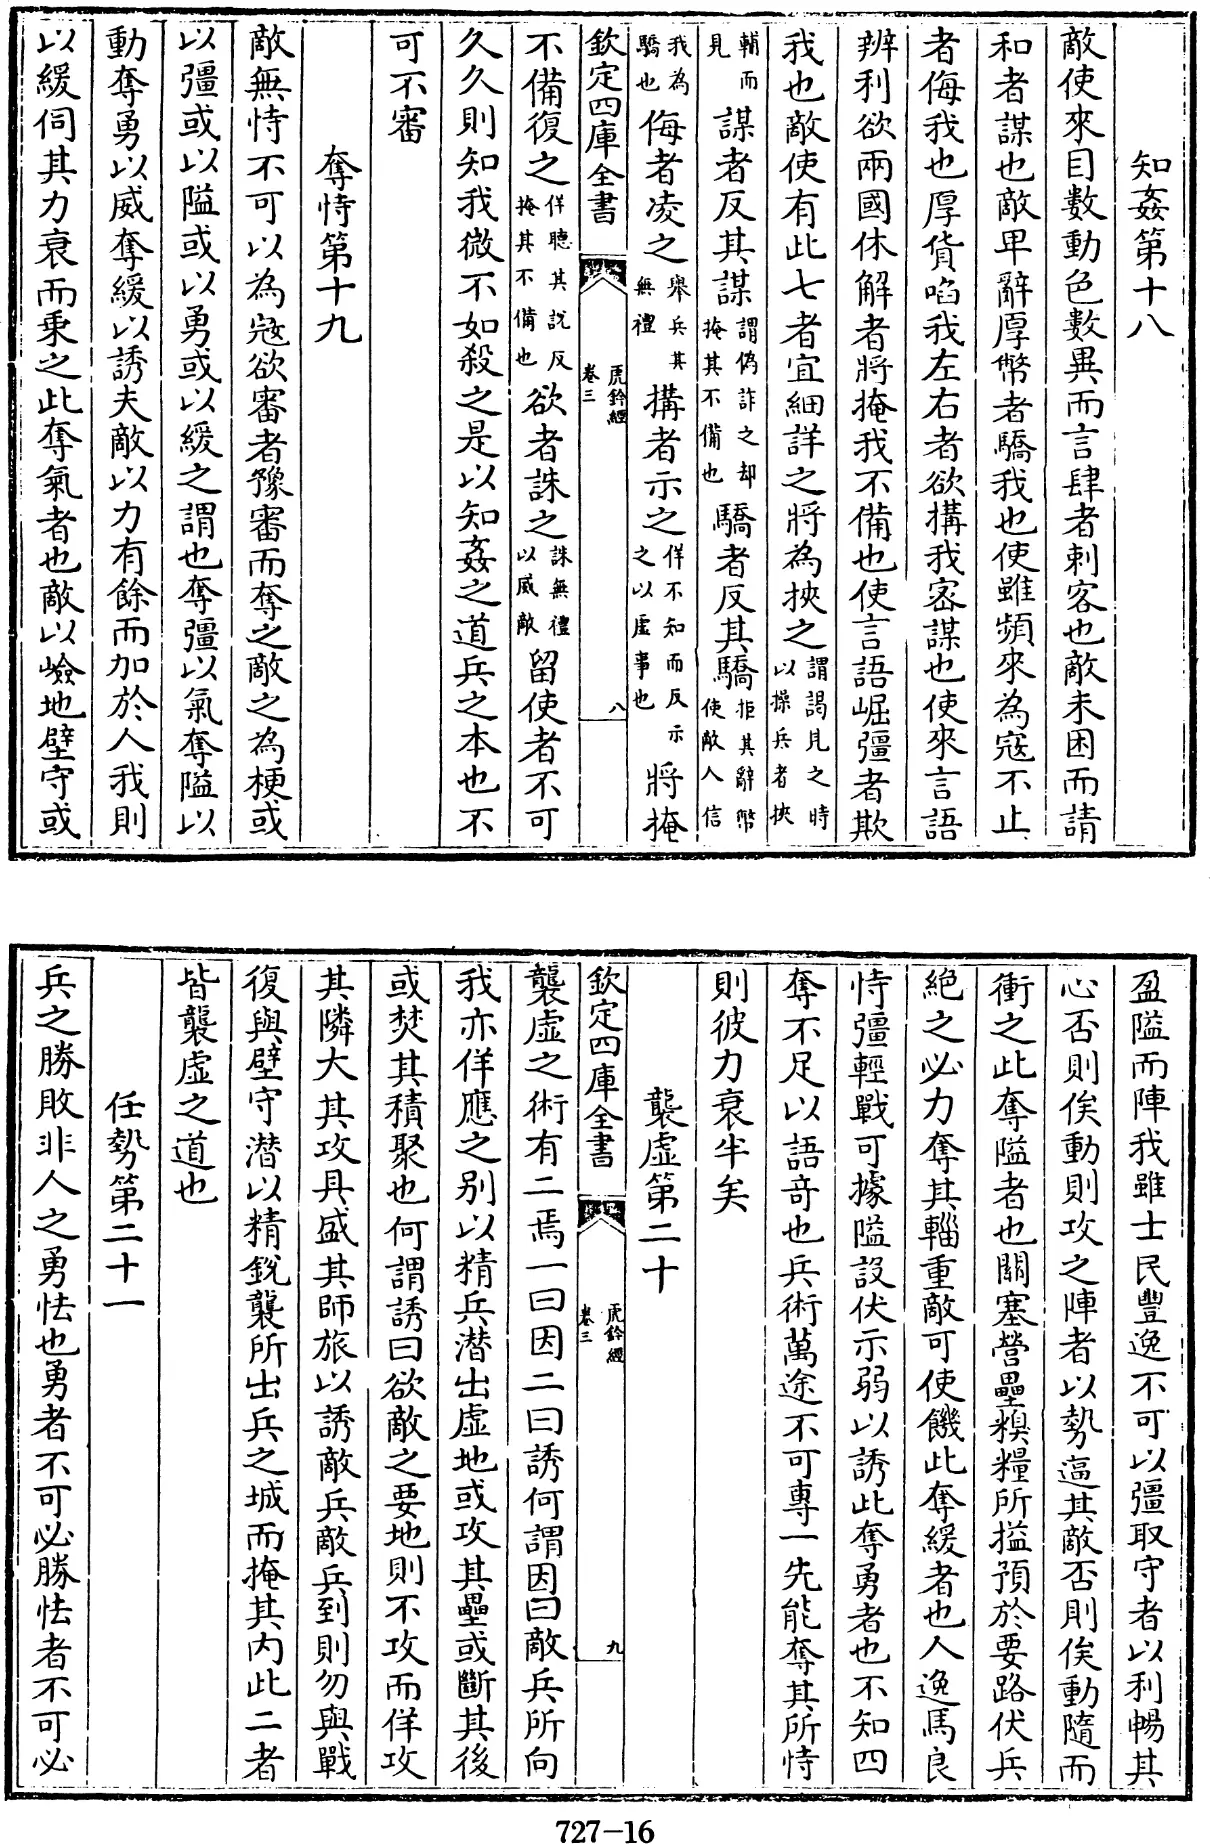 知姦第十八
敵使來目數動色數異而言肆者刺客也敵未困而請
和者謀也敵卑辭厚幣者驕我也使雖頻來為寇不止
者侮我也厚貨啗我左右者欲搆我宻謀也使來言語
辨利欲兩國休解者將掩我不備也使言語崛彊者欺
我也敵使有此七者宜細詳之將為挾之謂謁見之時以操兵者挾
輔而見謀者反其謀謂偽詐之却掩其不備也驕者反其驕拒其辭幣使敵人信
我為驕也侮者凌之舉兵其無禮搆者示之佯不知而反示之以虛事也將掩
欽定四庫全書 虎鈐經卷三 八
不備復之佯聽其說反掩其不備也欲者誅之誅無禮以威敵留使者不可
久久則知我微不如殺之是以知姦之道兵之本也不
可不審
奪恃第十九
敵無恃不可以為寇欲審者豫審而奪之敵之為梗或
以彊或以隘或以勇或以緩之謂也奪彊以氣奪隘以
動奪勇以威奪緩以誘夫敵以力有餘而加於人我則
以緩伺其力衰而乘之此奪氣者也敵以嶮地壁守或
盈隘而陣我雖士民豐逸不可以彊取守者以利暢其
心否則俟動則攻之陣者以勢逼其敵否則俟動隨而
衝之此奪隘者也關塞營壘糗糧所搤預於要路伏兵
絕之必力奪其輜重敵可使饑此奪緩者也人逸馬良
恃彊輕戰可據隘設伏示弱以誘此奪勇者也不知四
奪不足以語竒也兵術萬途不可專一先能奪其所恃
則彼力衰半矣
襲虛第二十
欽定四庫全書 虎鈐經卷三 九
襲虛之術有二焉一曰因二曰誘何謂因曰敵兵所向
我亦佯應之别以精兵潛出虛地或攻其壘或斷其後
或焚其積聚也何謂誘曰欲敵之要地則不攻而佯攻
其隣大其攻具盛其師旅以誘敵兵敵兵到則勿與戰
復與壁守潛以精銳襲所出兵之城而掩其内此二者
皆襲虛之道也
任勢第二十一
兵之勝敗非人之勇怯也勇者不可必勝怯者不可必
727-16